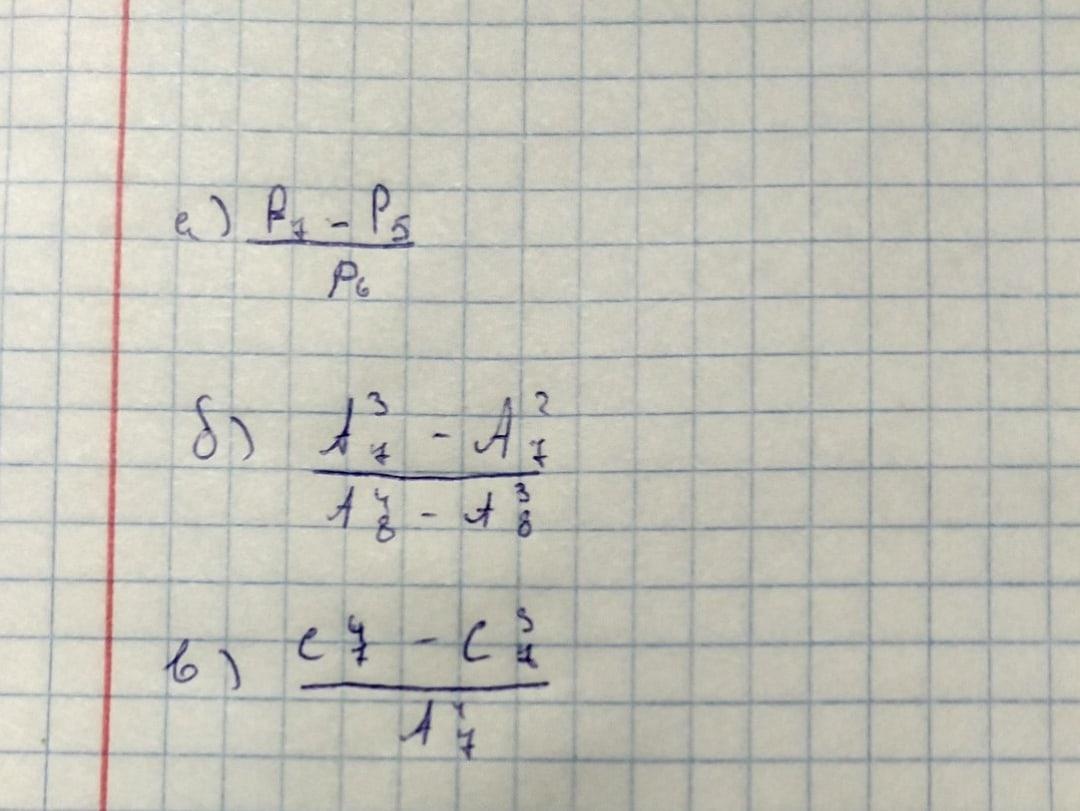 а) (P₇ - P₅) / P₆
б) (A₇³ - A₇²) / (A₈⁴ - A₈³)
в) (C₇⁴ - C³) / A₇